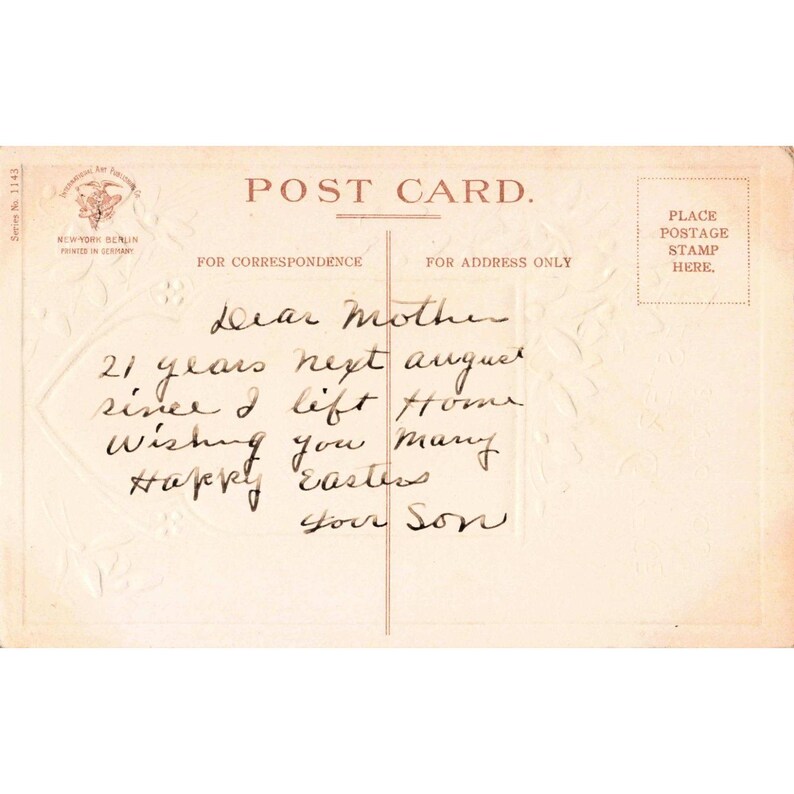 Series No. 1143
INTERNATIONAL ART PUBLISHING CO.
NEW-YORK BERLIN
PRINTED IN GERMANY.
POST CARD.
PLACE
POSTAGE
STAMP
HERE.
FOR CORRESPONDENCE
FOR ADDRESS ONLY
Dear Mother
21 years next august
since I left Home
Wishing you Many
Happy Easters
Your Son